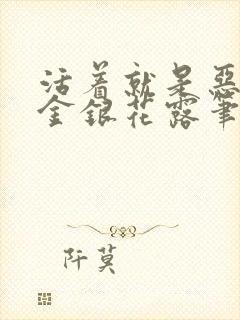 活着就是恶
金银花露笔
阡莫